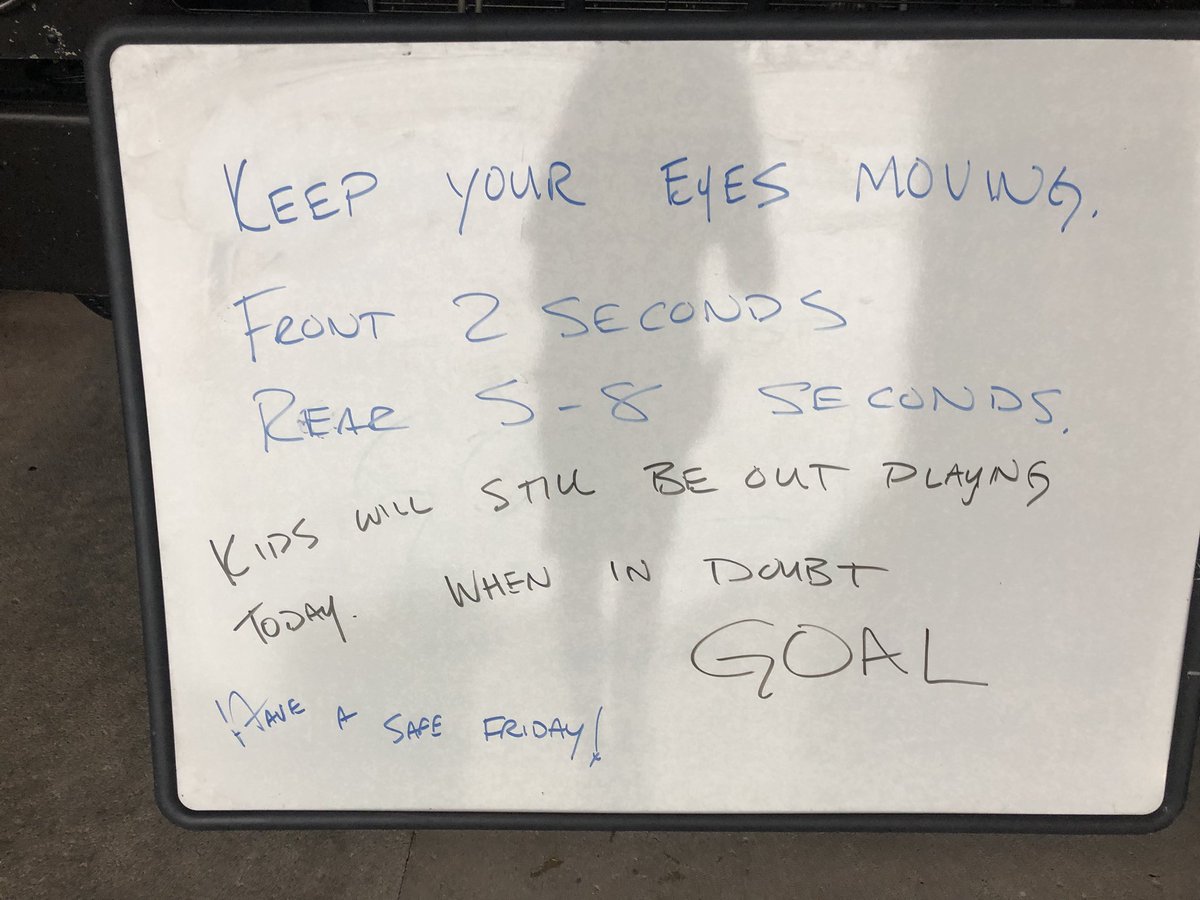 KEEP YOUR EYES MOVING.
FRONT 2 SECONDS
REAR 5-8 SECONDS.
KIDS WILL STILL BE OUT PLAYING
TODAY. WHEN IN DOUBT
GOAL
HAVE A SAFE FRIDAY!